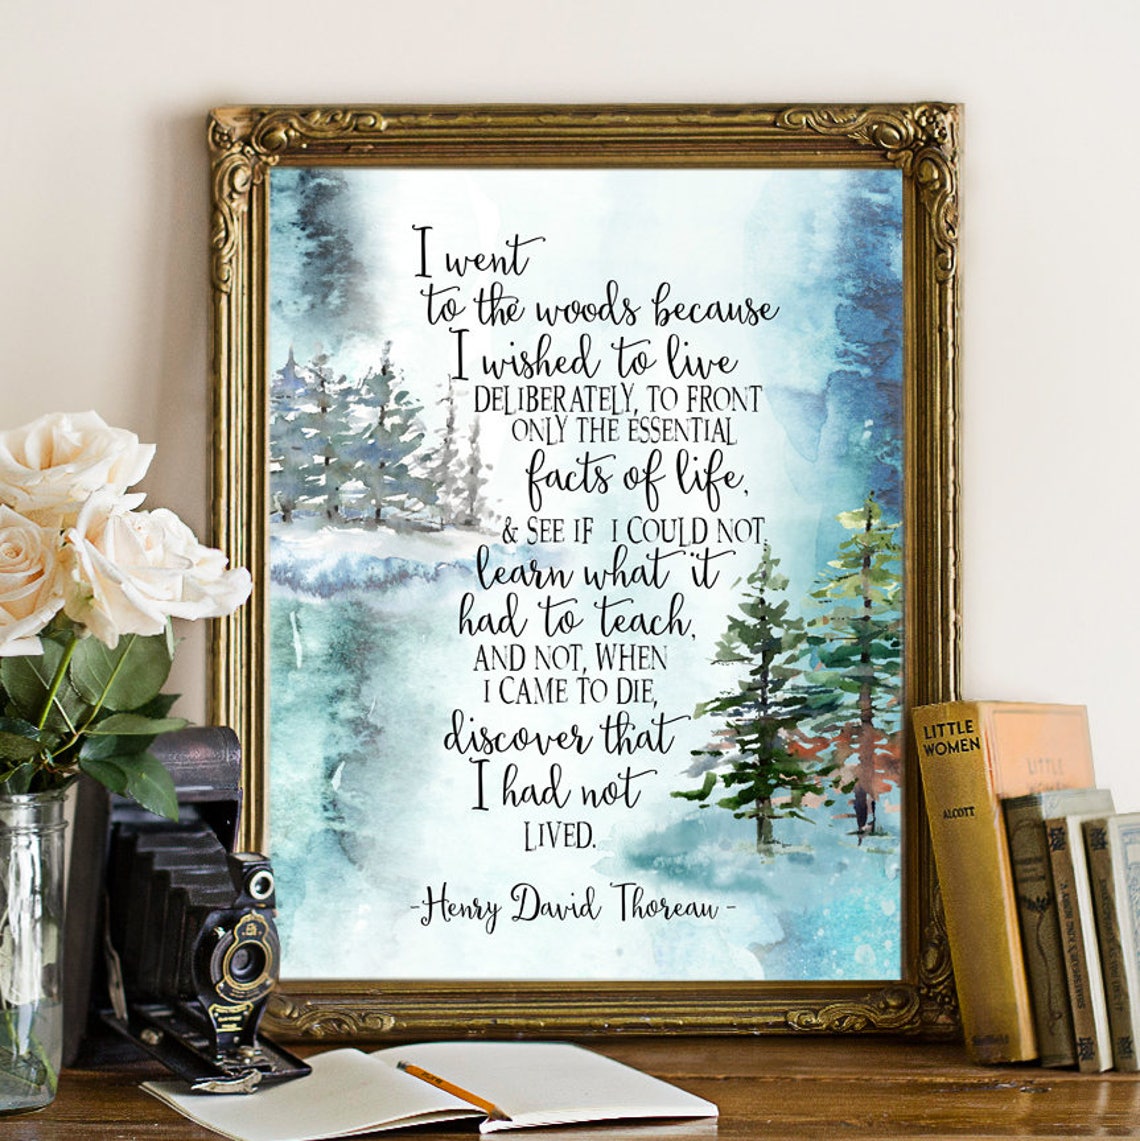 I went
to the woods because
I wished to live
DELIBERATELY, TO FRONT
ONLY THE ESSENTIAL
facts of life,
& SEE IF I COULD NOT
learn what it
had to teach,
AND NOT, WHEN
I CAME TO DIE,
discover that
I had not
LIVED.
-Henry David Thoreau-
LITTLE
WOMEN
ALCOTT
LITTLE